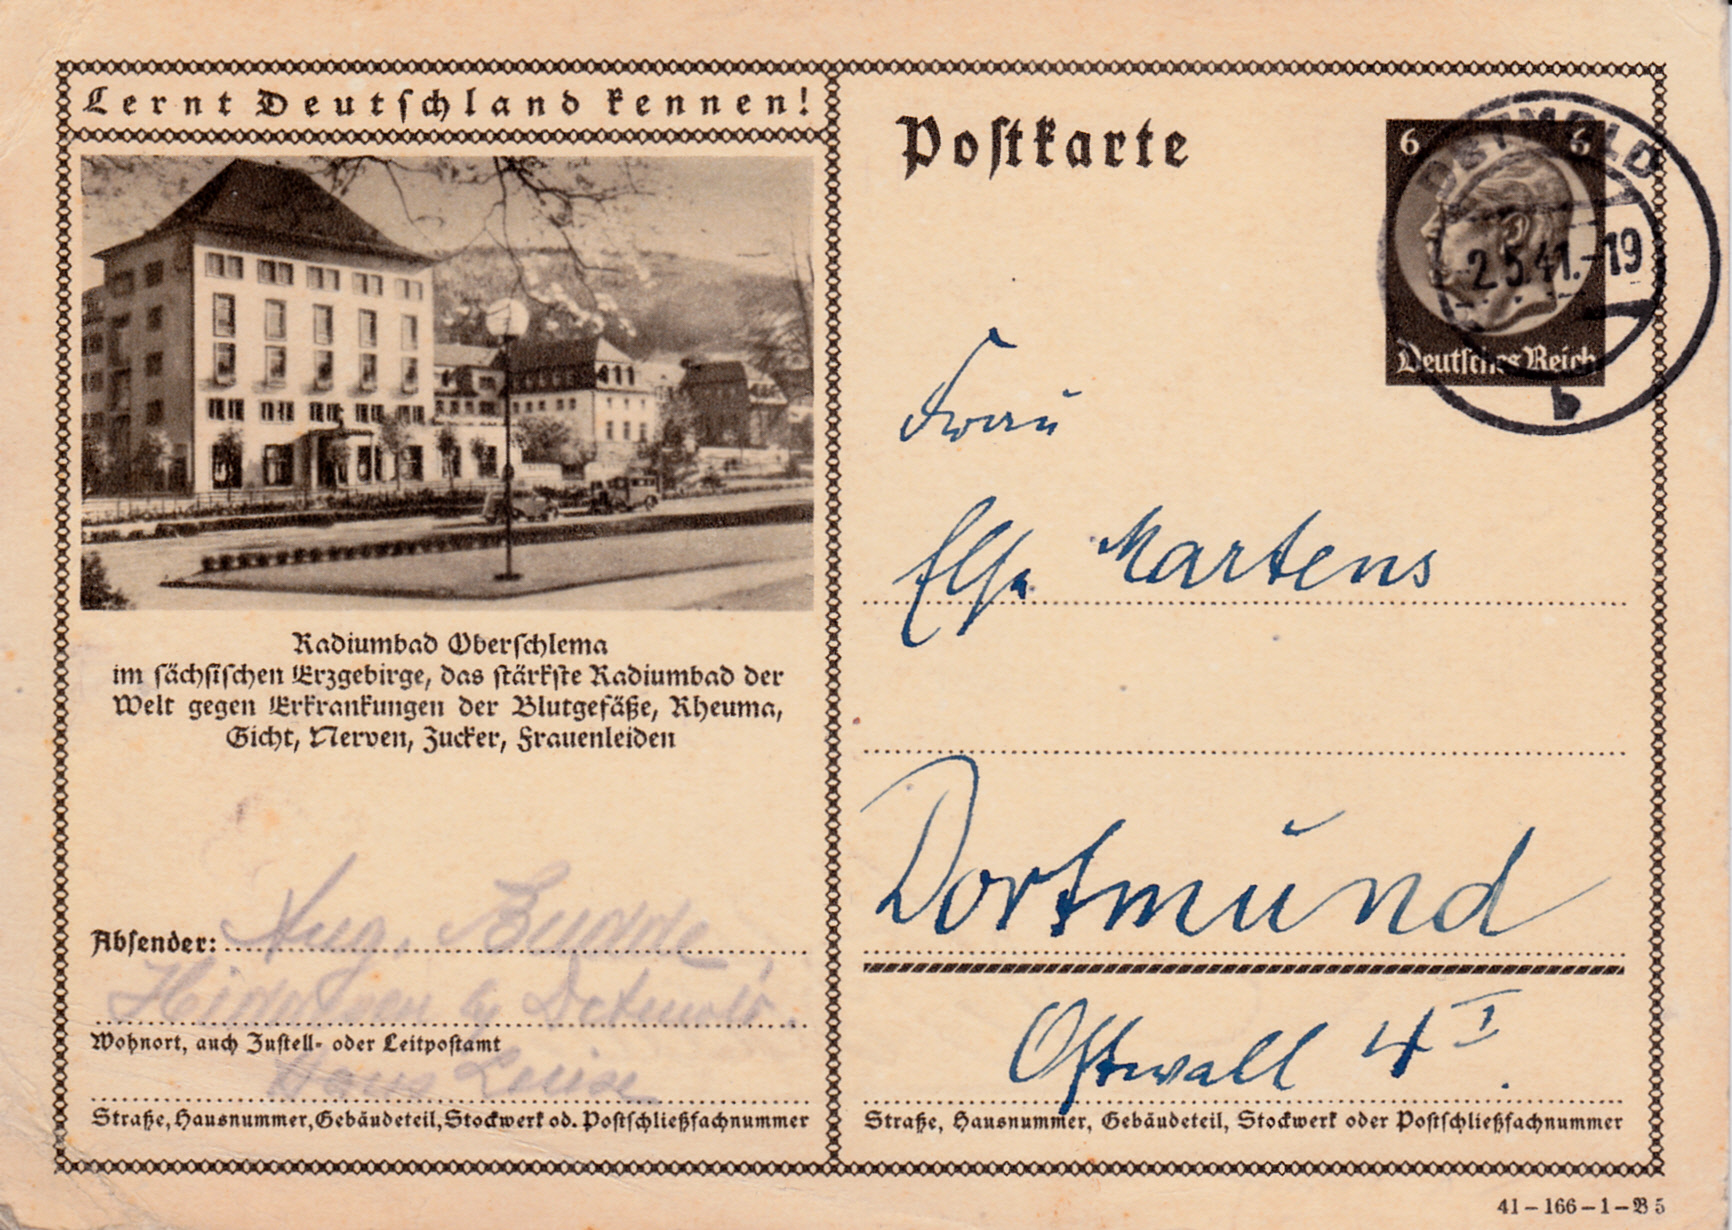 Lernt Deutschland kennen!
Radiumbad Oberschlema
im sächsischen Erzgebirge, das stärkste Radiumbad der
Welt gegen Erkrankungen der Blutgefäße, Rheuma,
Gicht, Nerven, Zucker, Frauenleiden
Absender: Aug. Budde,
Hiddesen b/ Detmold.
Wohnort, auch Zustell- oder Leitpostamt
Haus Luise
Straße, Hausnummer, Gebäudeteil, Stockwerk od. Postschließfachnummer
Postkarte
6 6
Deutsches Reich
DETMOLD
2.5.41.-19
b
Frau
Else Martens
Dortmund
Ostwall 4 I.
Straße, Hausnummer, Gebäudeteil, Stockwerk oder Postschließfachnummer
41-166-1-B5